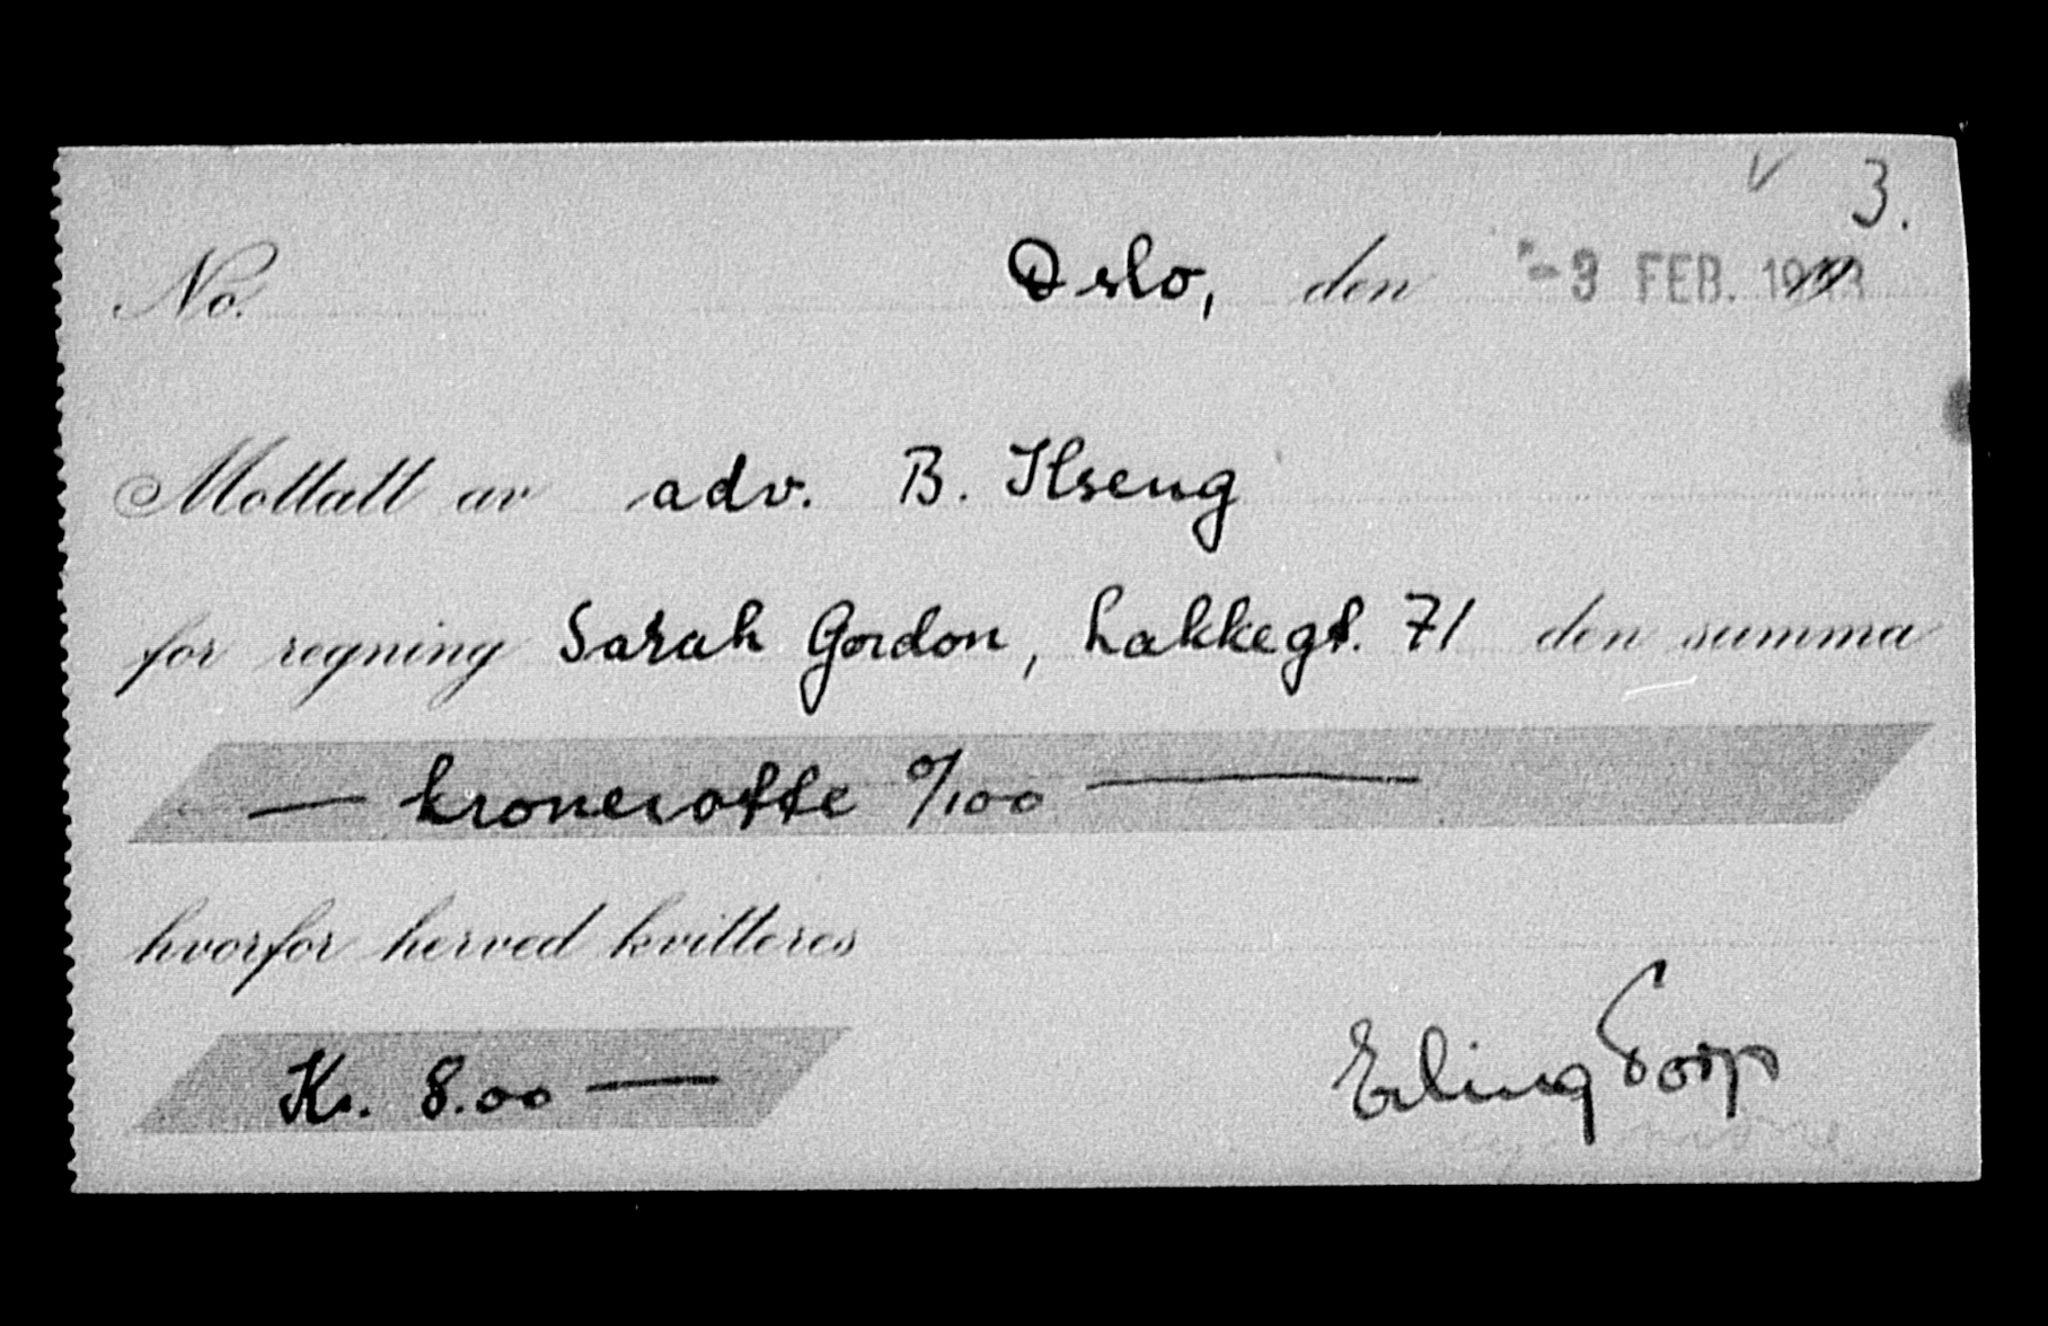 ✓ 3.
No. Oslo, den -3 FEB. 1943
Mottatt av adv. B. Ilseng
for regning Sarah Gordon, Lakkegt. 71 den summa
— kronerotte 0/100 —
hvorfor herved kvitteres
Kr. 8.00 —
Erling Torp